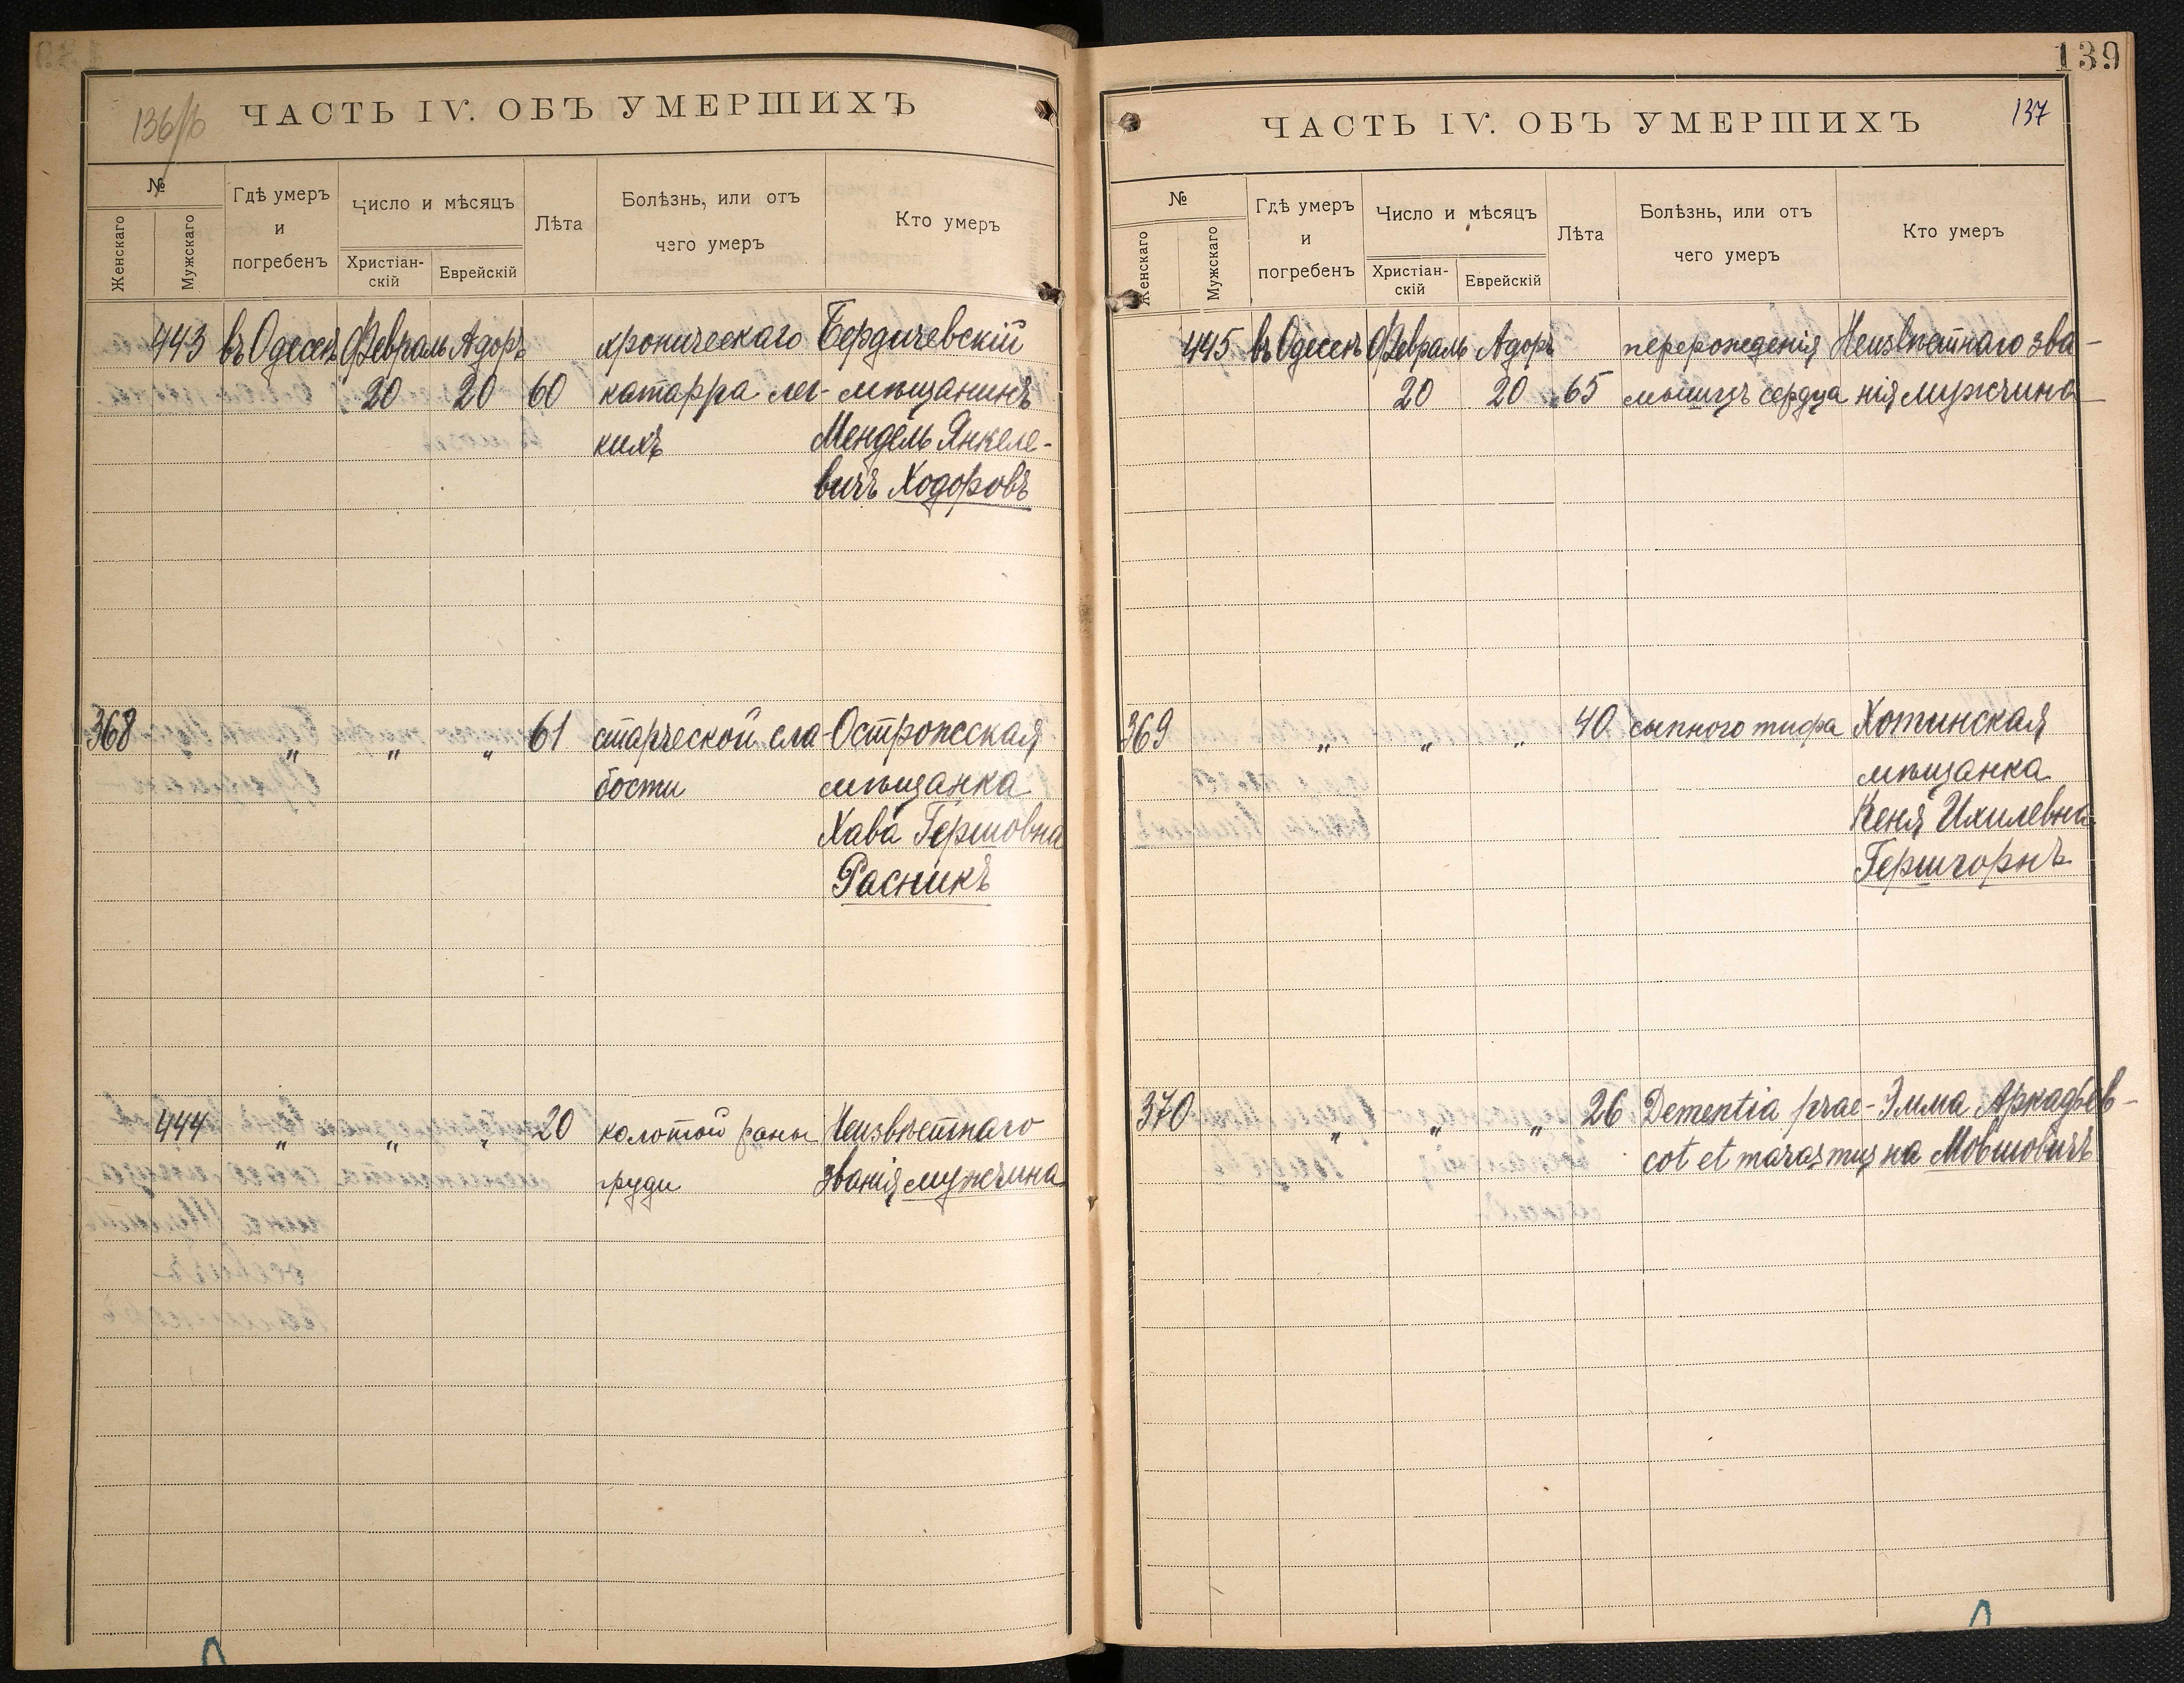 136/б
ЧАСТЬ IV. ОБЪ УМЕРШИХЪ
№
Женскаго
Мужскаго
Гдѣ умеръ
и
погребенъ
Число и мѣсяцъ
Христіан-
скій
Еврейскій
Лѣта
Болѣзнь, или отъ
чего умеръ
Кто умеръ
443 въ Одессѣ Февраль Адоръ хроническаго Бердичевскій
20 20 60 катарра лег- мѣщанинъ
кихъ Мендель Янкеле-
вичъ Ходоровъ
368 " " " 61 старческой сла- Острожская
бости мѣщанка
Хава Гершовна
Расникъ
444 " " " 20 колотой раны Неизвѣстнаго
груди званія мужчина
139
137
ЧАСТЬ IV. ОБЪ УМЕРШИХЪ
№
Женскаго
Мужскаго
Гдѣ умеръ
и
погребенъ
Число и мѣсяцъ
Христіан-
скій
Еврейскій
Лѣта
Болѣзнь, или отъ
чего умеръ
Кто умеръ
445 въ Одессѣ Февраль Адоръ перерожденія Неизвѣстнаго зва-
20 20 65 мышцъ сердца нія мужчина
369 " " " 40 сыпного тифа Хотинская
мѣщанка
Кеня Ихилевна
Гершгорнъ
370 " " " 26 Dementia prae- Эмма Аркадьев-
cot et marasmus на Мовшовичъ